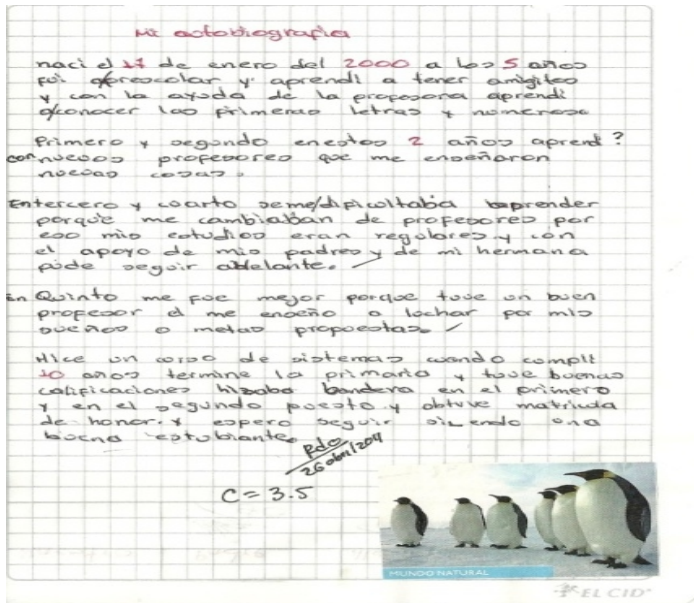 Mi actobiografia
naci el 17 de enero del 2000 a los 5 años
fui preescolar y aprendi a tener amigitos
y con la ayuda de la profesora aprendi
conocer las primeras letras y numeros
Primero y segundo en estos 2 años aprendi ?
con nuevos profesores que me enseñaron
nuevas cosas.
En tercero y cuarto se me dificultaba aprender
porque me cambiaban de profesores por
eso mis estudios eran regulares y con
el apoyo de mis padres y de mi hermana
pude seguir adelante.
en Quinto me fue mejor porque tuve un buen
profesor el me enseño a luchar por mis
sueños o metas propuestas.
Hice un curso de sistemas cuando cumpli
10 años termine la primaria y tuve buenas
calificaciones hizaba bandera en el primero
y en el segundo puesto y obtuve matricula
de honor. y espero seguir siendo una
buena estubiante.
Rdo
26 abril/2011
C = 3.5
MUNDO NATURAL
EL CID